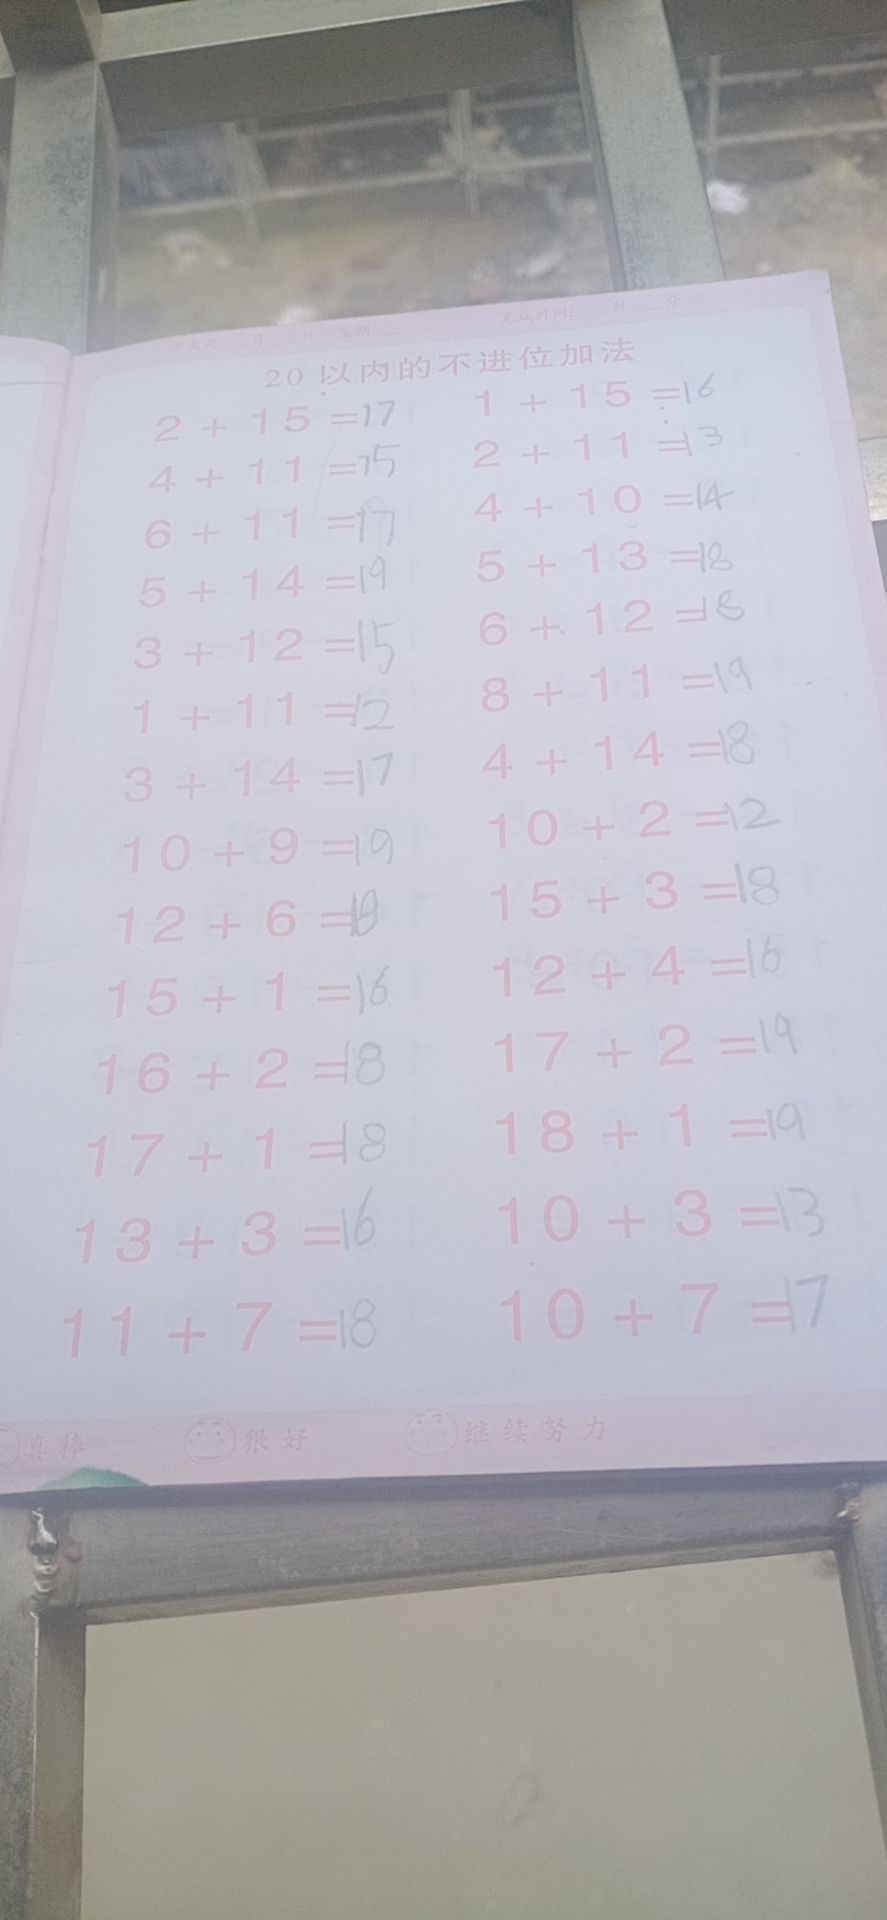 月 日 星期 完成时间: 时 分
20 以内的不进位加法
2 + 15 =17 1 + 15 =16
4 + 11 =15 2 + 11 =13
6 + 11 =17 4 + 10 =14
5 + 14 =19 5 + 13 =18
3 + 12 =15 6 + 12 =18
1 + 11 =12 8 + 11 =19
3 + 14 =17 4 + 14 =18
10 + 9 =19 10 + 2 =12
12 + 6 =18 15 + 3 =18
15 + 1 =16 12 + 4 =16
16 + 2 =18 17 + 2 =19
17 + 1 =18 18 + 1 =19
13 + 3 =16 10 + 3 =13
11 + 7 =18 10 + 7 =17
真棒 很好 继续努力